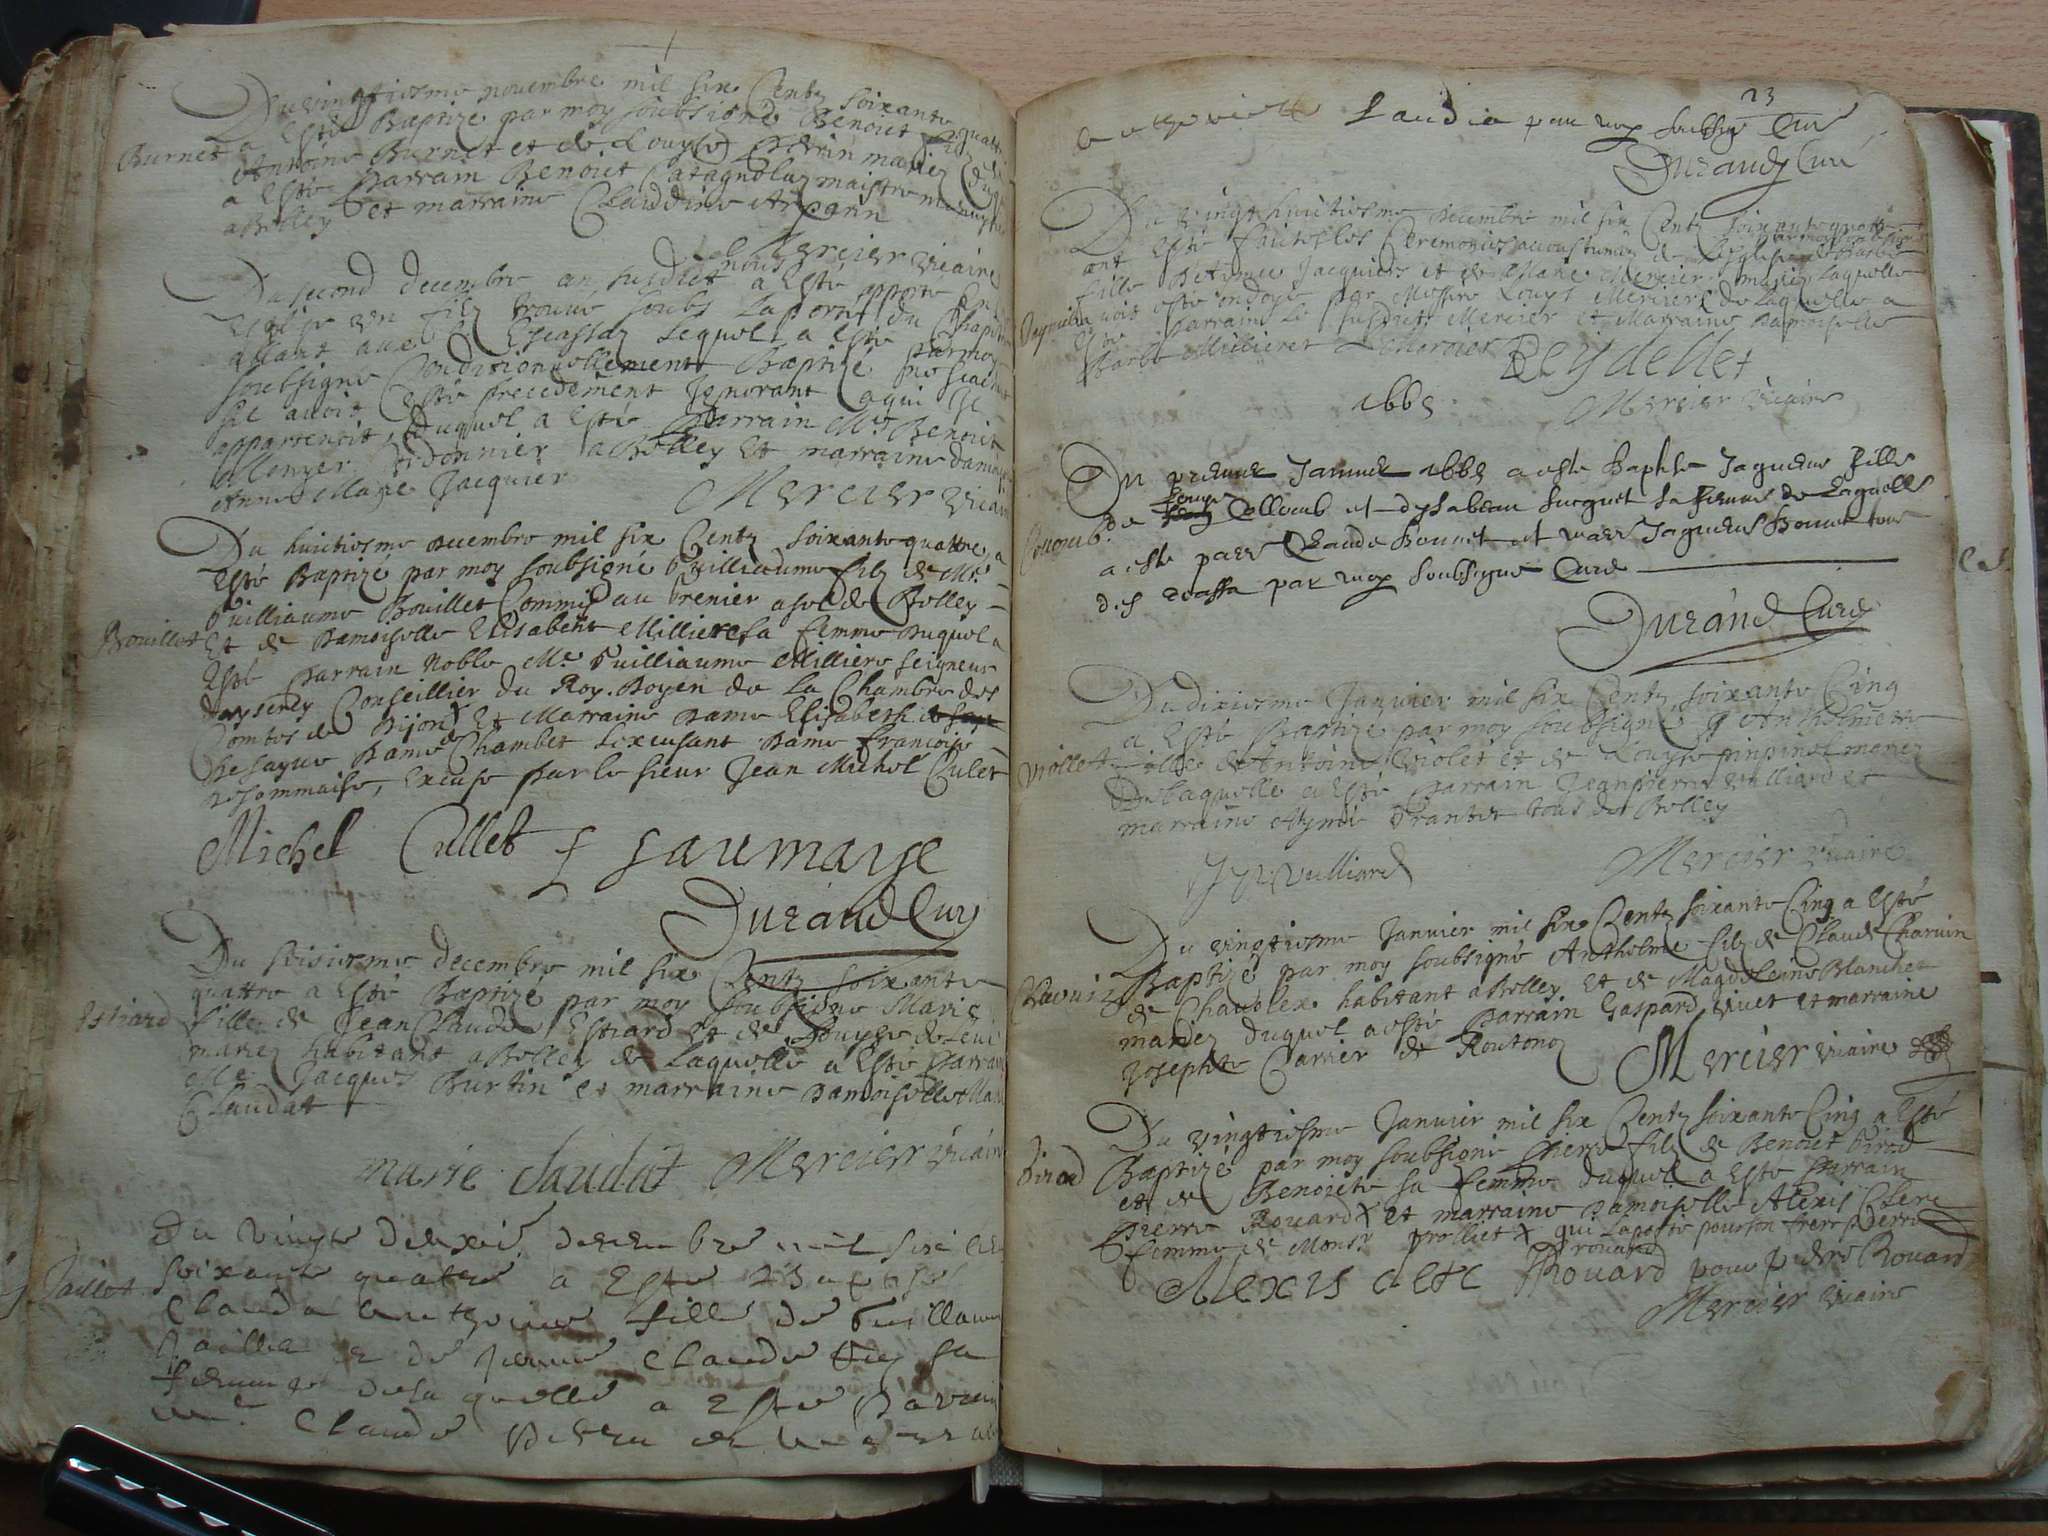 Du vingtiesme novembre mil six Centz soixante quattre
Burnet a Esté Baptizé par moy soubsigné Benoict filz de
Antoine Burnet et de Louyse Perrin mariez duquel
a Esté Parrain Benoict Catagnolaz maistre
a Belley et marraine Claudine Arparin
Mercier vicaire
Du second decembre an susdict nous a Esté apporté
Eglise un filz trouvé soubs la porte du Chapitre
allant aux Escassaz Lequel a Esté par moy
soubsigné Conditionnellement Baptizé ne scachant
sil avoit Esté precedement Ignorant a qui Il
appartenoit, Duquel a Esté Parrain Me Benoict
Monyer Cordonnier a Belley Et marraine dame
Anne Marie Jacquier
Mercier vicaire
Du huictiesme decembre mil six Centz soixante quattre a
Esté Baptizé par moy soubsigné Guilliaume filz de Mr
Guilliaume Bouillet Commis au Grenier a sel de Belley
Bouillet Et de Damoiselle Elisabeth Milliere sa femme Duquel a
Esté Parrain Noble Me Guilliaume Milliere seigneur
d'ayserey Conseillier du Roy. Doyen de La Chambre des
Comtes de Dijon Et Marraine Dame Elisabeth
Dame Chambet Lexcusant Dame francoise
de sommaise, Excuse Par le sieur Jean Michel Culet
Michel Cullet f saumayse
Durand Curé
Du seisiesme decembre mil six Centz soixante
quattre a Esté Baptizé par moy soubsigné Marie
Estiard fille de Jean Claude Estiard Et de Louyse de
mariez habitant a Belley de Laquelle a Esté Parrain
Me Jacques Burtin et marraine Damoiselle Marie
Claudat
marie Claudat Mercier vicaire
Du vingte deuxié decembre mil six cent
Jaillet soixante quatre a Esté Baptisé
Clauda Anthoine fille de Guillaume
Jaillet et de Jeanne Claude sa
femme de la quelle a Esté Parain
me Claude
23
par moy soubsig Curé
Durand Curé
Du vingt huictiesme decembre mil six Centz soixante quattre
ont Esté faictes les Ceremonies accoustumées de Leglise a Barbe
fille de Aymé Jacquier et de Marie Mercier mariez Laquelle
Jaquier avoit esté ondoyé par Messire Louys Mercier de Laquelle a
Esté Parrain Le susdict Mercier et Marraine Damoiselle
Barbe Millieret Mercier Reydellet
1665 Mercier vicaire
Du premier Janvier 1665 a esté Baptisée Jaqueme fille
Collomb. de Louys Collomb et dysabeau Sucquet sa femme de Laquelle
a esté parr Claude Bonnet et marr Jaqueme Bonnet tous
des par moy soubsigné Curé
Durand Curé
Du dixiesme Janvier mil six Centz soixante Cinq
a Esté Baptizé par moy soubsigné Anthelmette
Viollet fille de Antoine Violet et de Louyse pinpinel mariez
De laquelle a Esté Parrain Jeanpierre Vulliard et
marraine Aymée Grantet tous de Belley
J P Vulliard Mercier vicaire
Du vingtiesme Janvier mil six Centz soixante Cinq a Esté
Baptizé par moy soubsigné Anthelme filz de Claude Charvin
Charvin de Chanblex habitant a Belley Et de Magdeleine Blanchet
mariez duquel a esté Parrain Gaspard vuet et marraine
Josephte Carrier de Routonoz Mercier vicaire
Du vingtiesme Janvier mil six Centz soixante Cinq a Esté
Girod Baptizé par moy soubsigné Pierre filz de Benoict Girod
et de Benoicte sa femme duquel a Esté Parrain
Pierre Rouard Et marraine Damoiselle Alexis Clerc
femme de Monsr Prolliet qui La porté pour son frere Pierre
rouard
Alexis clerc Rouard pour pierre Rouard
Mercier vicaire